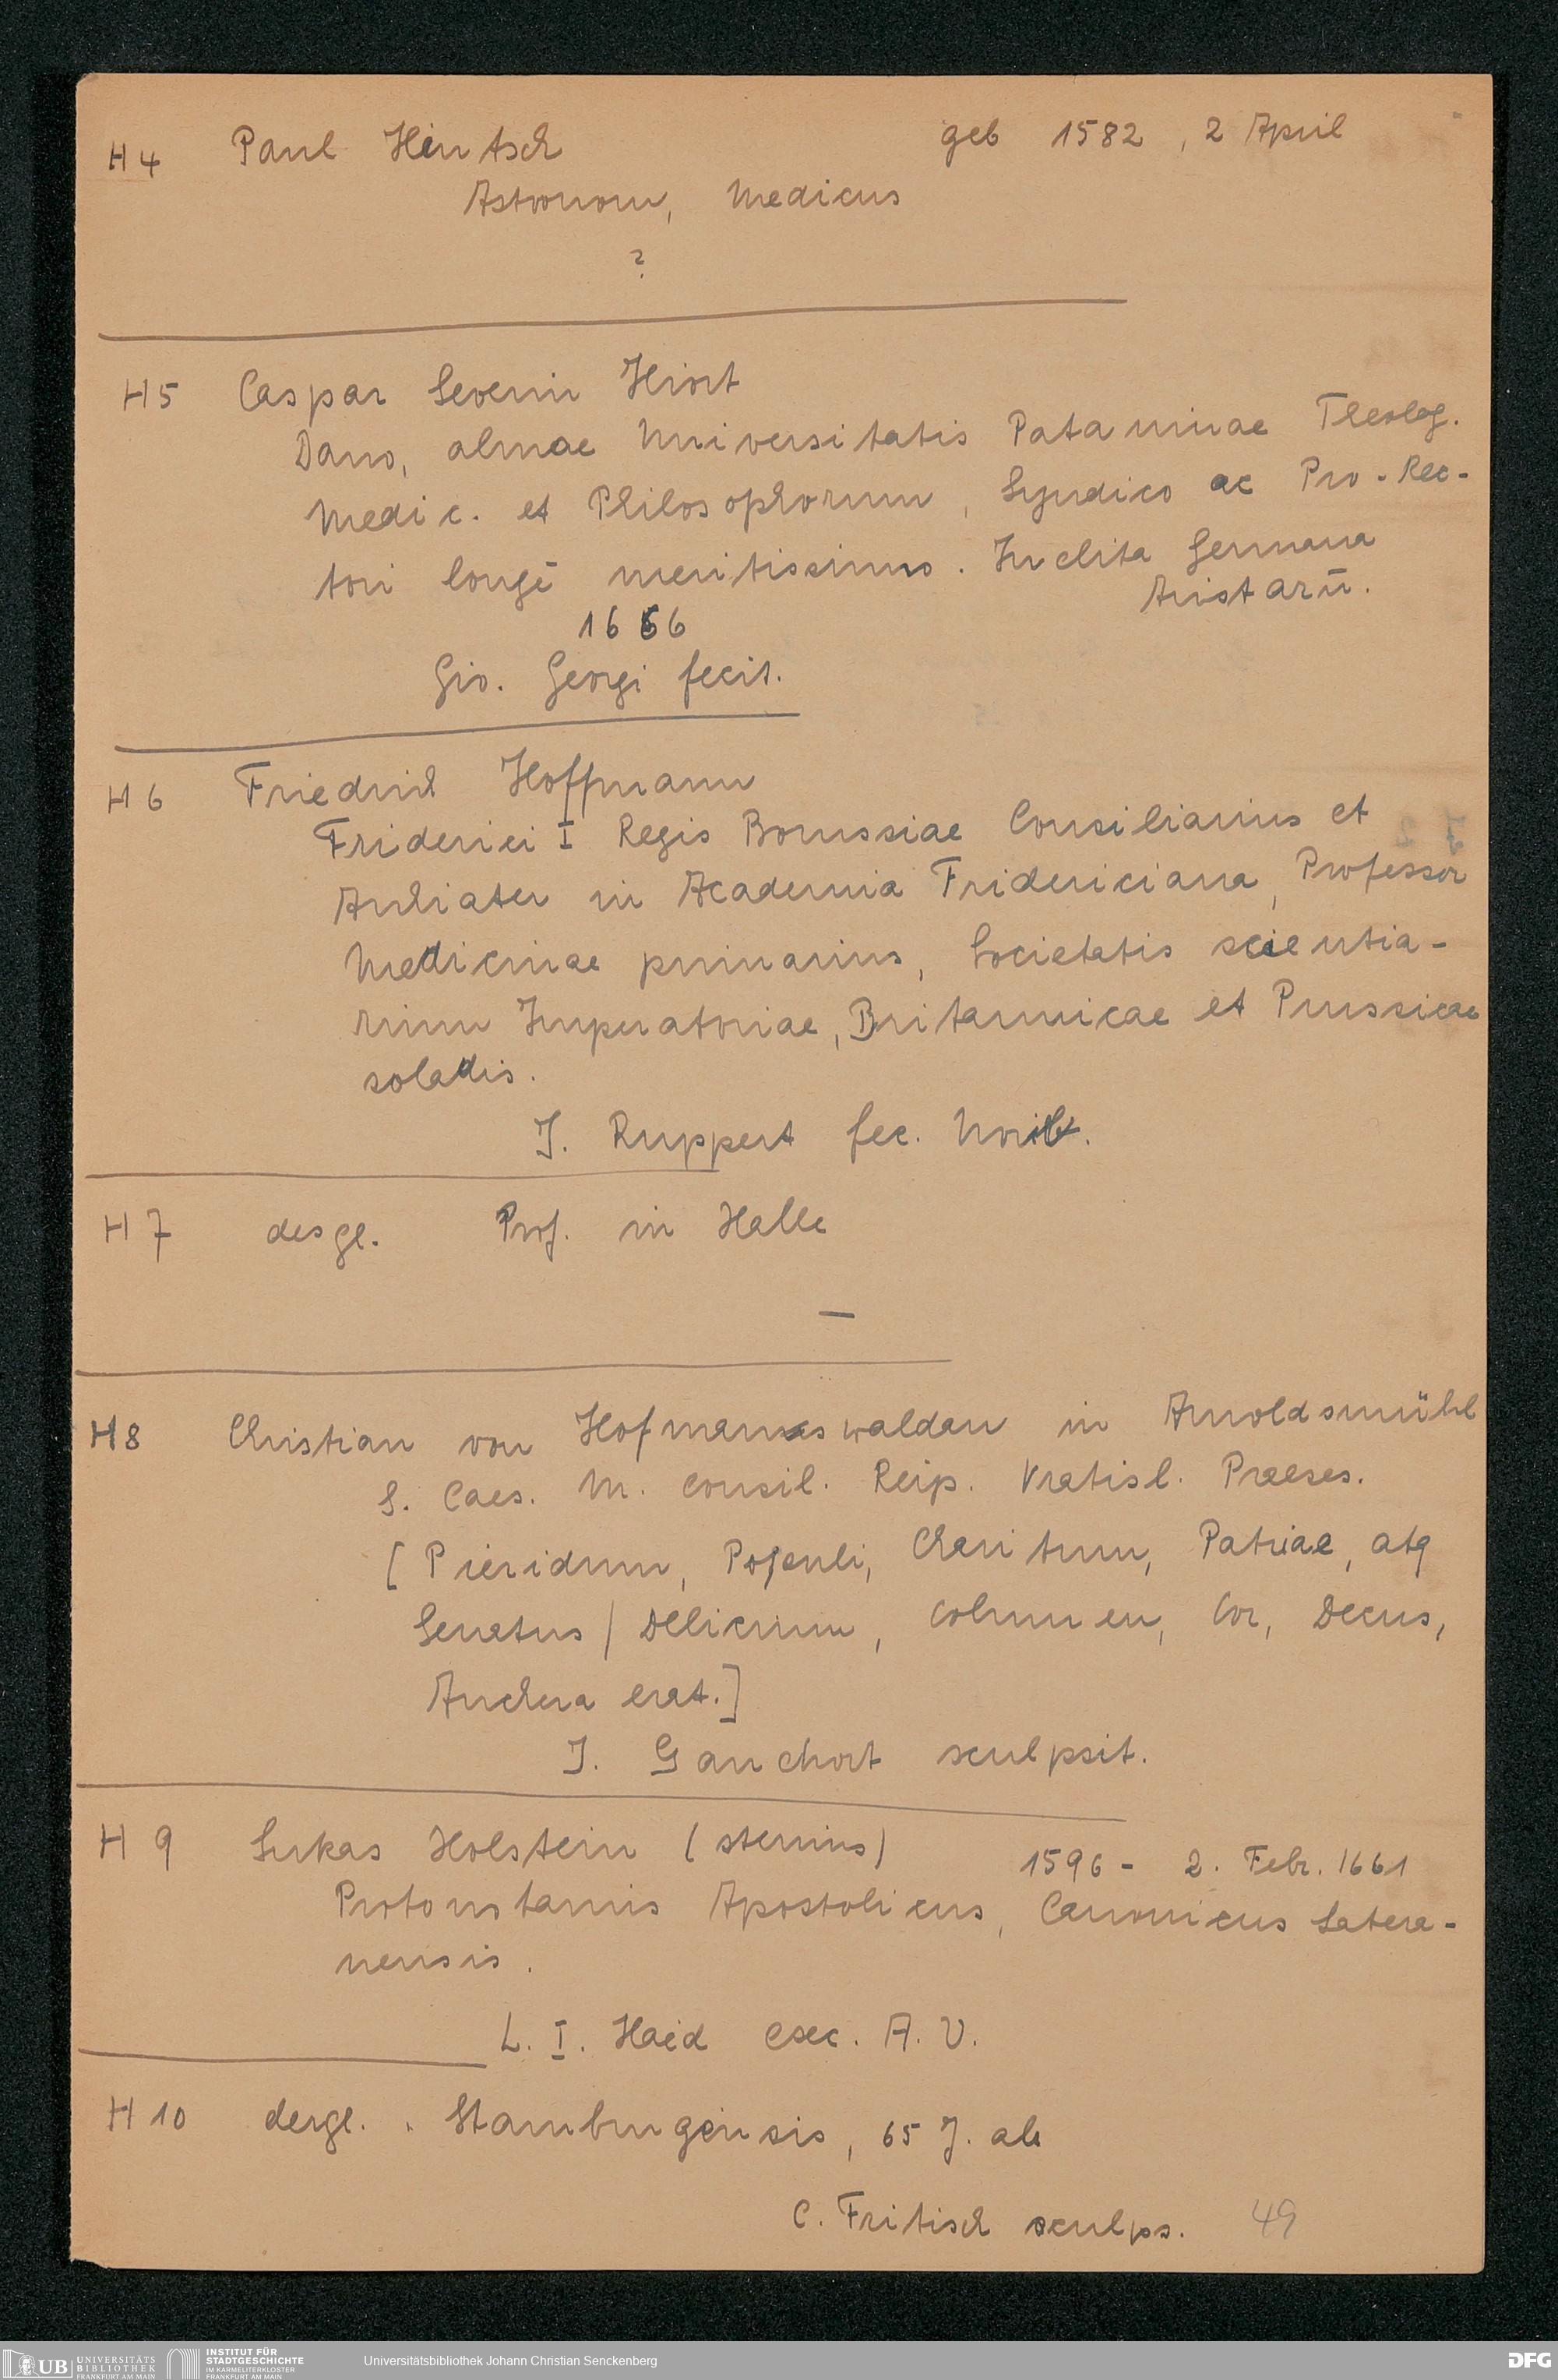 H 4 Paul Hintsch geb 1582, 2 April
Astronom, Medicus
?
H 5 Caspar Severin Hiort
Dano, almae Universitatis Pataminae Theolog.
Medic. et Philosophorum, Syndico ac Pro-Rec-
tori longē meritissimo. Inclita Germana
Aristarū.
1666
Gio. Georgi fecit.
H 6 Friedrich Hoffmann
Friderici I Regis Borussiae Consiliarius et
Archiater in Academia Fridericiana, Professor
Medicinae primarius, Societatis scientia-
rum Imperatoriae, Britannicae et Prussicae
soladis.
J. Ruppert fec. Norib.
H 7 desgl. Prof. in Halle
—
H 8 Christian von Hofmannswaldau in Arnoldsmühl
S. Caes. M. Consil. Reip. Vratisl. Praeses.
[Pieridum, Populi, Charitum, Patriae, atq
Senatus / Delicium, Columen, Cor, Decus,
Anchera erat.]
J. Ganchort sculpsit.
H 9 Lukas Holstein (stenius) 1596 - 2. Febr. 1661
Protonotarius Apostolicus, Canonicus Latera-
nensis.
L. I. Haid exc. A. V.
H 10 dergl. Hamburgensis, 65 J. alt
C. Fritisch sculps. 49
UB UNIVERSITÄTS
BIBLIOTHEK
FRANKFURT AM MAIN
INSTITUT FÜR
STADTGESCHICHTE
IM KARMELITERKLOSTER
FRANKFURT AM MAIN
Universitätsbibliothek Johann Christian Senckenberg
DFG